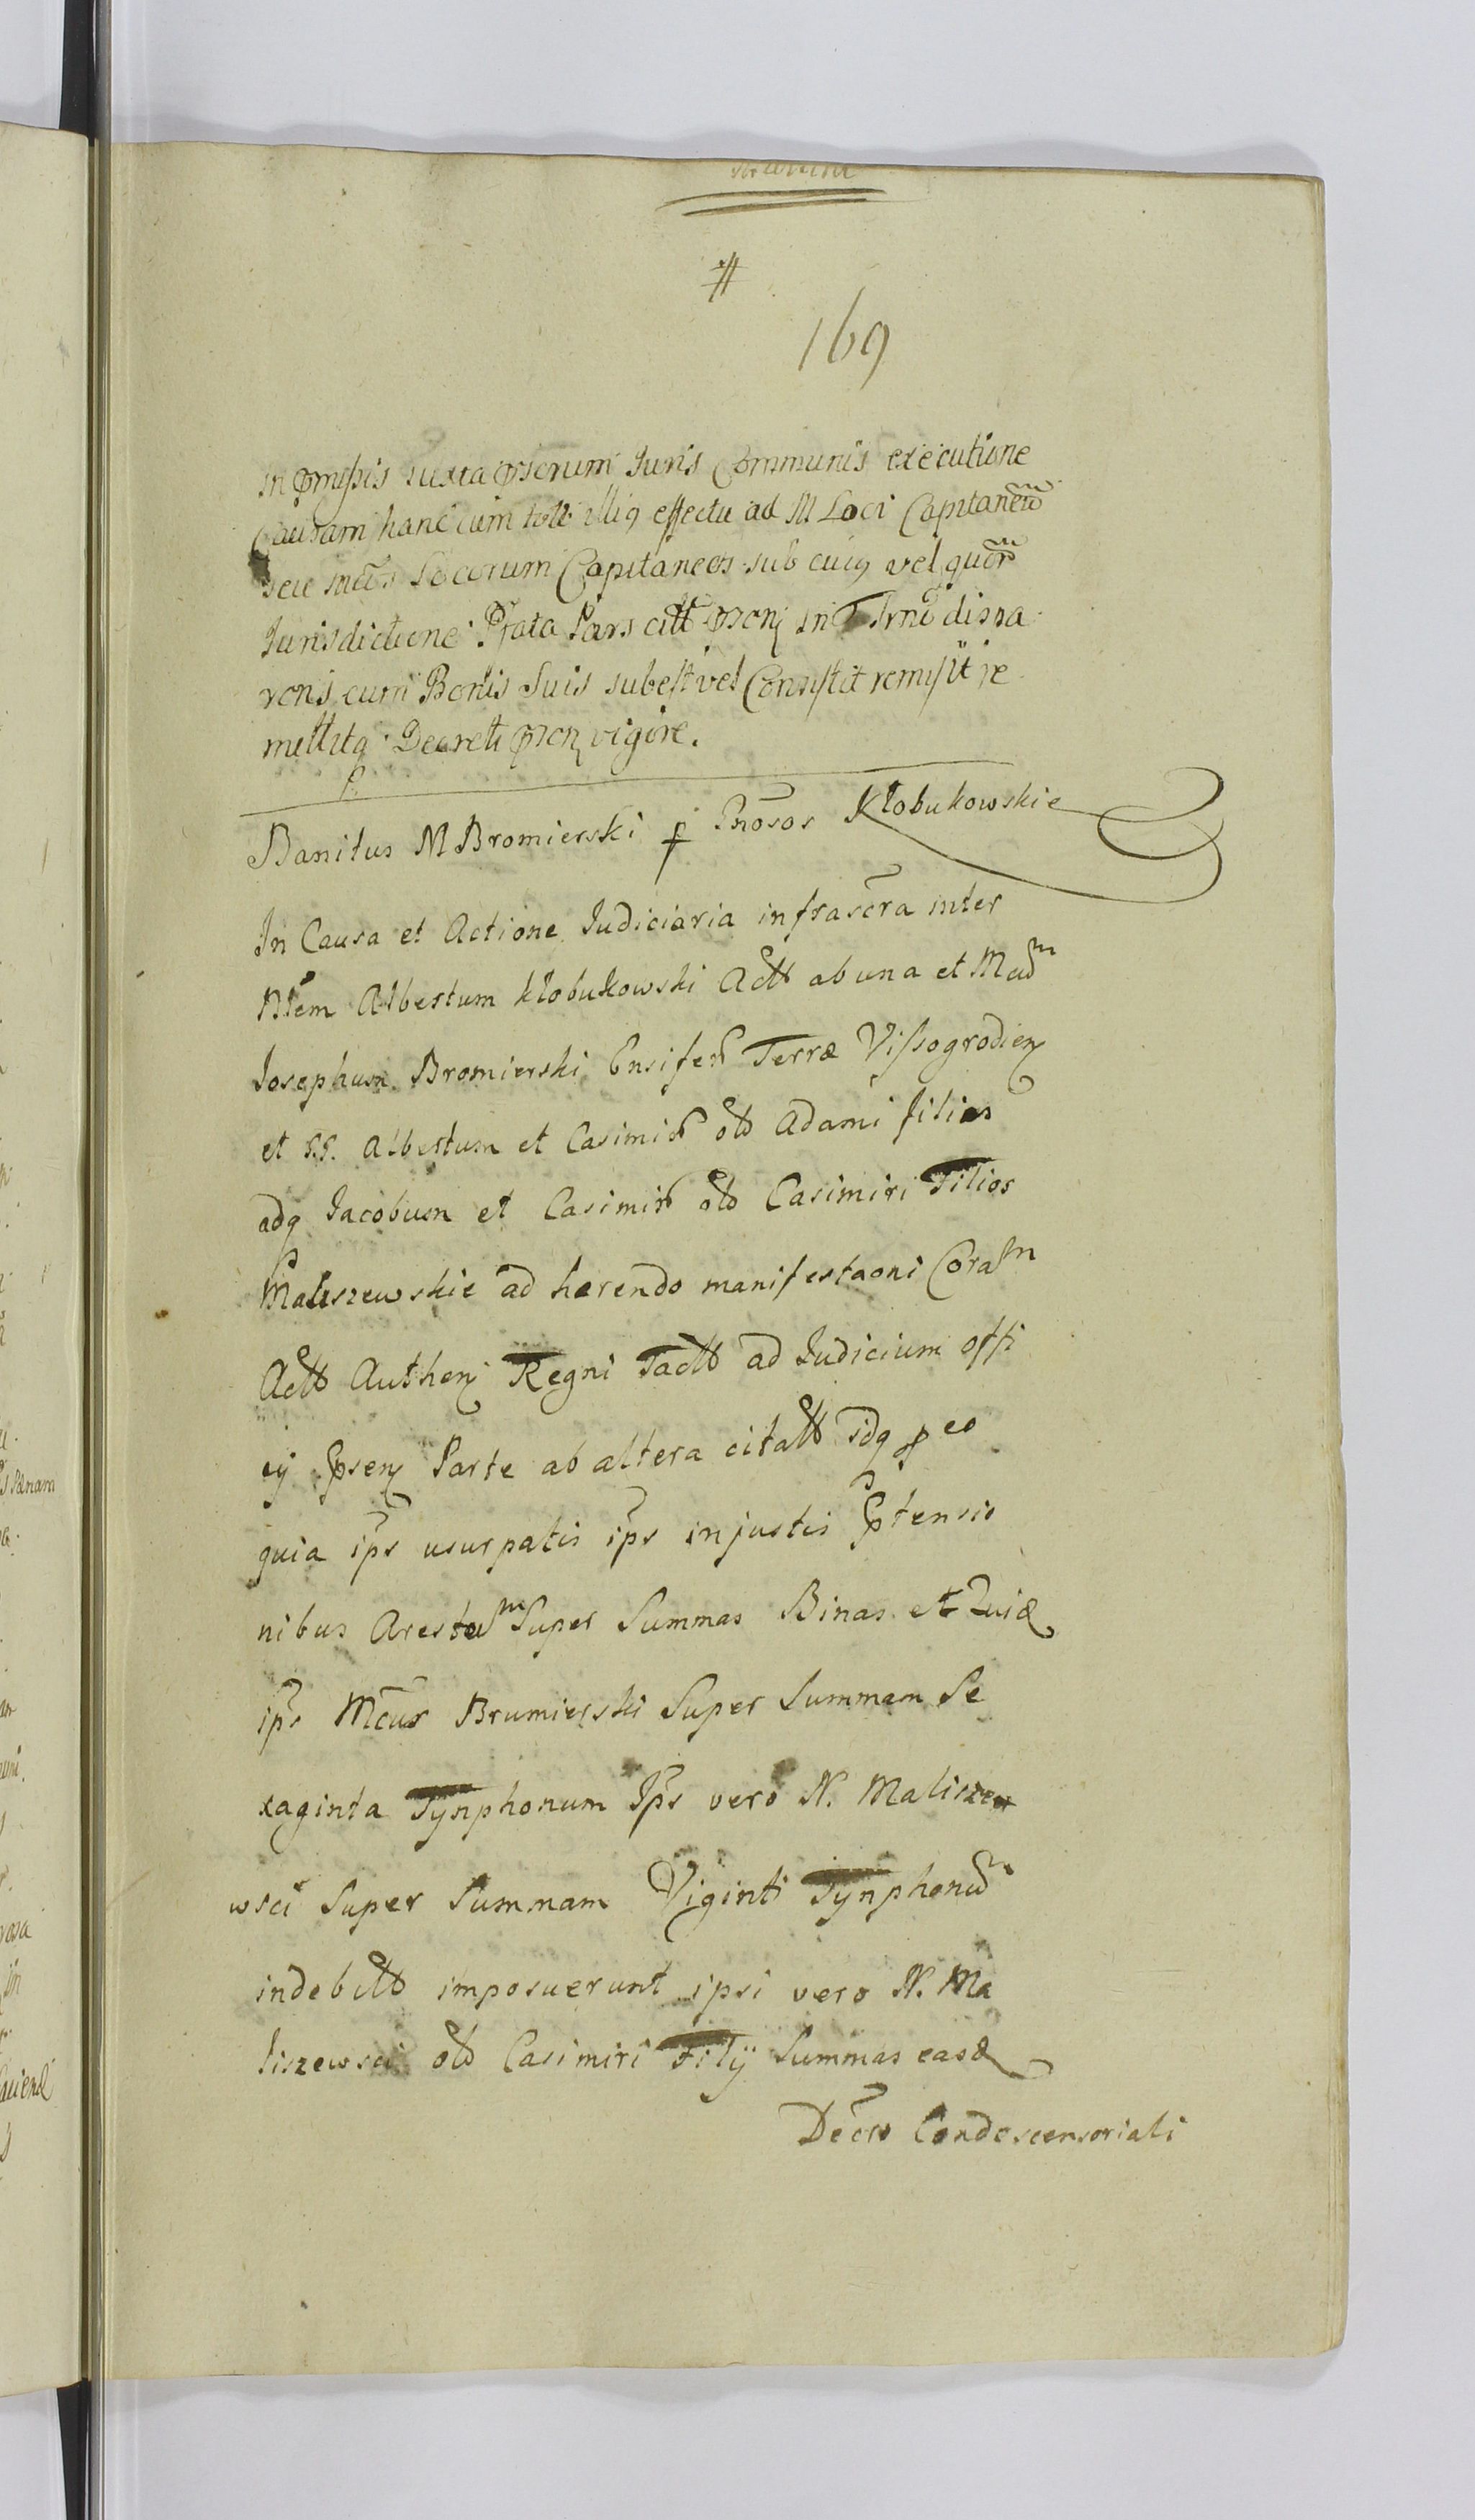 169
in pmissis iuxta pscrum Juris Communis executione
Causam hanc cum toto illiq effectu ad M Loci Capitaneum
seu Locorum Capitaneos sub cuiq vel quorm
Jurisdictione Pfata Pars citt pscn in Trno disna
rons cum Bonis Suis subest vel Consistit remisit re
mittitq Decreti pscn vigore.
Banitus M Bromierski p Gnosos Kłobukowskie
In Causa et Actione Judiciaria infrascra inter
Nlem Albertum Kłobukowski Actt ab una et Mcum
Josephum Bromierski Ensifer Terræ Vissogrodien
et GG. Albertum et Casimir olb Adami filios
adq Jacobum et Casimir olb Casimiri Filios
Maliszewskie ad herendo manifestaoni Coram
Actt Authen Regni Factt ad Judicium offi
cij Psen Parte ab altera citatt idq p eo
quia ips usurpatis ips injustis Ptensio
nibus Arestum Super Summas Binas et Quid
ips Mcus Brumierski Super Summam Se
xaginta Tynphonum Ips vero N. Maliszew
wsci Super Summam Viginti Tynphonum
indebitt imposuerunt ipsi vero N. Ma
liszewsci olb Casimiri Filij Summas easd
Decro Condescensoriali